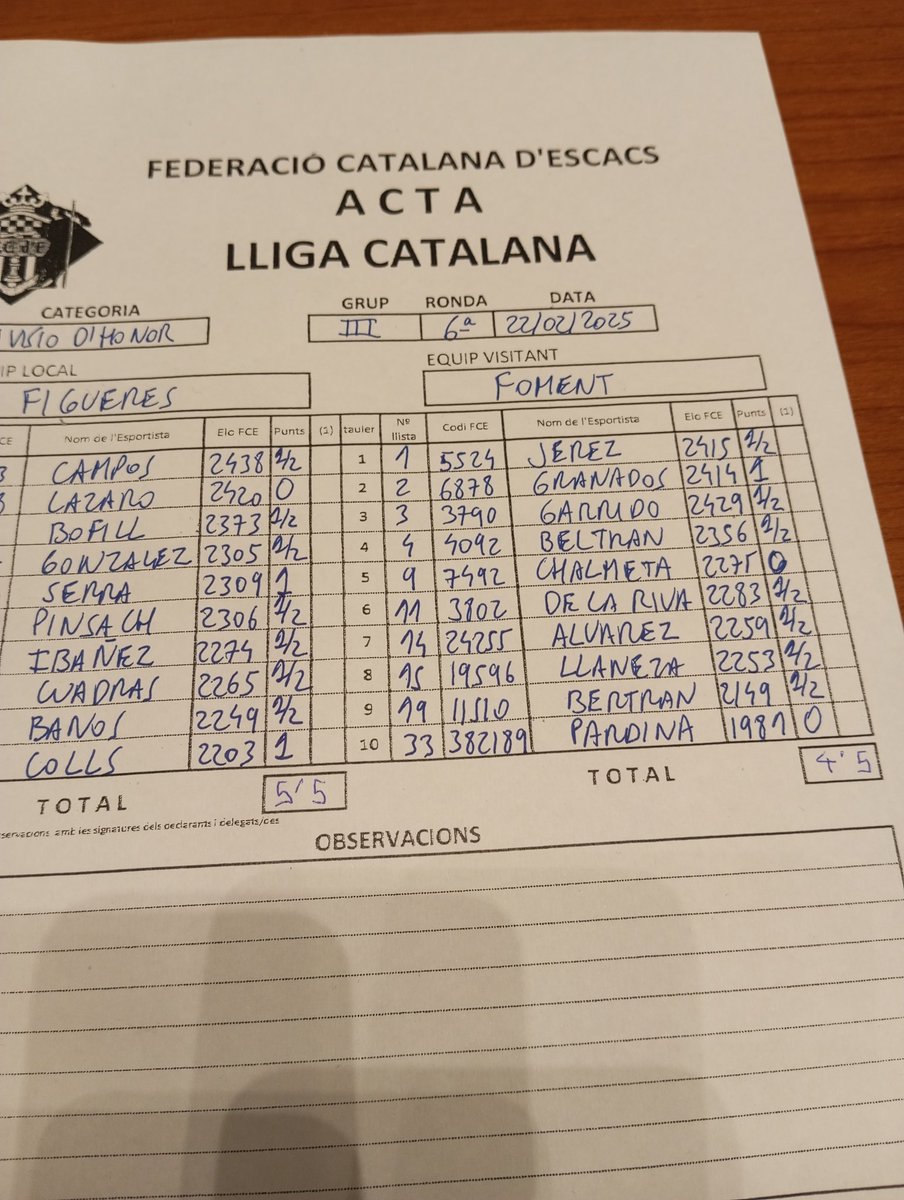 FEDERACIÓ CATALANA D'ESCACS
ACTA
LLIGA CATALANA
CATEGORIA GRUP RONDA DATA
D'HONOR III 6ª 22/02/2025
LOCAL EQUIP VISITANT
FIGUERES FOMENT
CE Nom de l'Esportista Elo FCE Punts (1) tauler Nº llista Codi FCE Nom de l'Esportista Elo FCE Punts (1)
CAMPOS 2438 1/2 1 1 5524 JEREZ 2415 1/2
LAZARO 2420 0 2 2 6878 GRANADOS 2414 1
BOFILL 2373 1/2 3 3 3790 GARRIDO 2429 1/2
GONZALEZ 2305 1/2 4 4 4092 BELTRAN 2356 1/2
SERRA 2309 1 5 9 7492 CHALMETA 2275 0
PINSACH 2306 1/2 6 11 3802 DE LA RIVA 2283 1/2
IBAÑEZ 2274 1/2 7 14 24255 ALVAREZ 2259 1/2
CUADRAS 2265 1/2 8 15 19596 LLANEZA 2253 1/2
BAÑOS 2249 1/2 9 19 11510 BERTRAN 2149 1/2
COLLS 2203 1 10 33 382189 PARDINA 1981 0
TOTAL 5'5 TOTAL 4'5
amb les signatures dels declarants i delegats/des
OBSERVACIONS